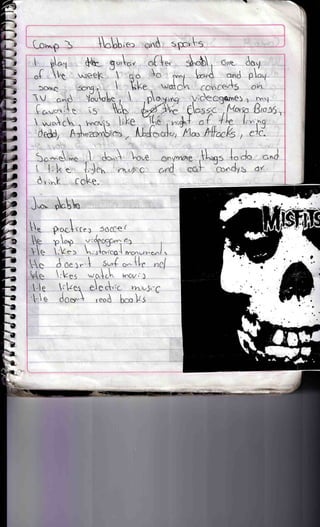 Comp 3 Hobbies and sports
I play the guitar after school, one day
of the week I go to my band and play
some songs, I like watch concerts on
TV and Youtube, I playing videogames, my
favorite is Halo and the classic Mario Bross,
I watch movis like The night of the living
dead, Astrozombies, Nosferatu, Mars Attacks, etc.
Sometime I don't have anymore things to do and
I like listen music and eat candys or
drink coke.
Juan pablo
He practices soccer
He play videogames
He likes historical monuments
He doesn't surf on the net
He likes watch movis
He likes electric music
He doesn't read books
MISFITS